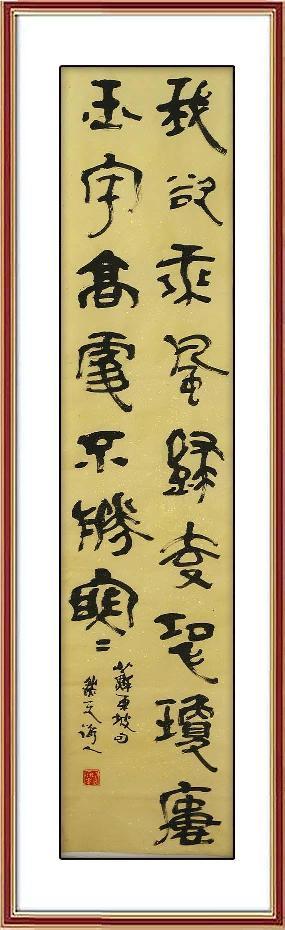 我欲乘風歸去恐瓊樓
玉宇高處不勝寒
蘇東坡句